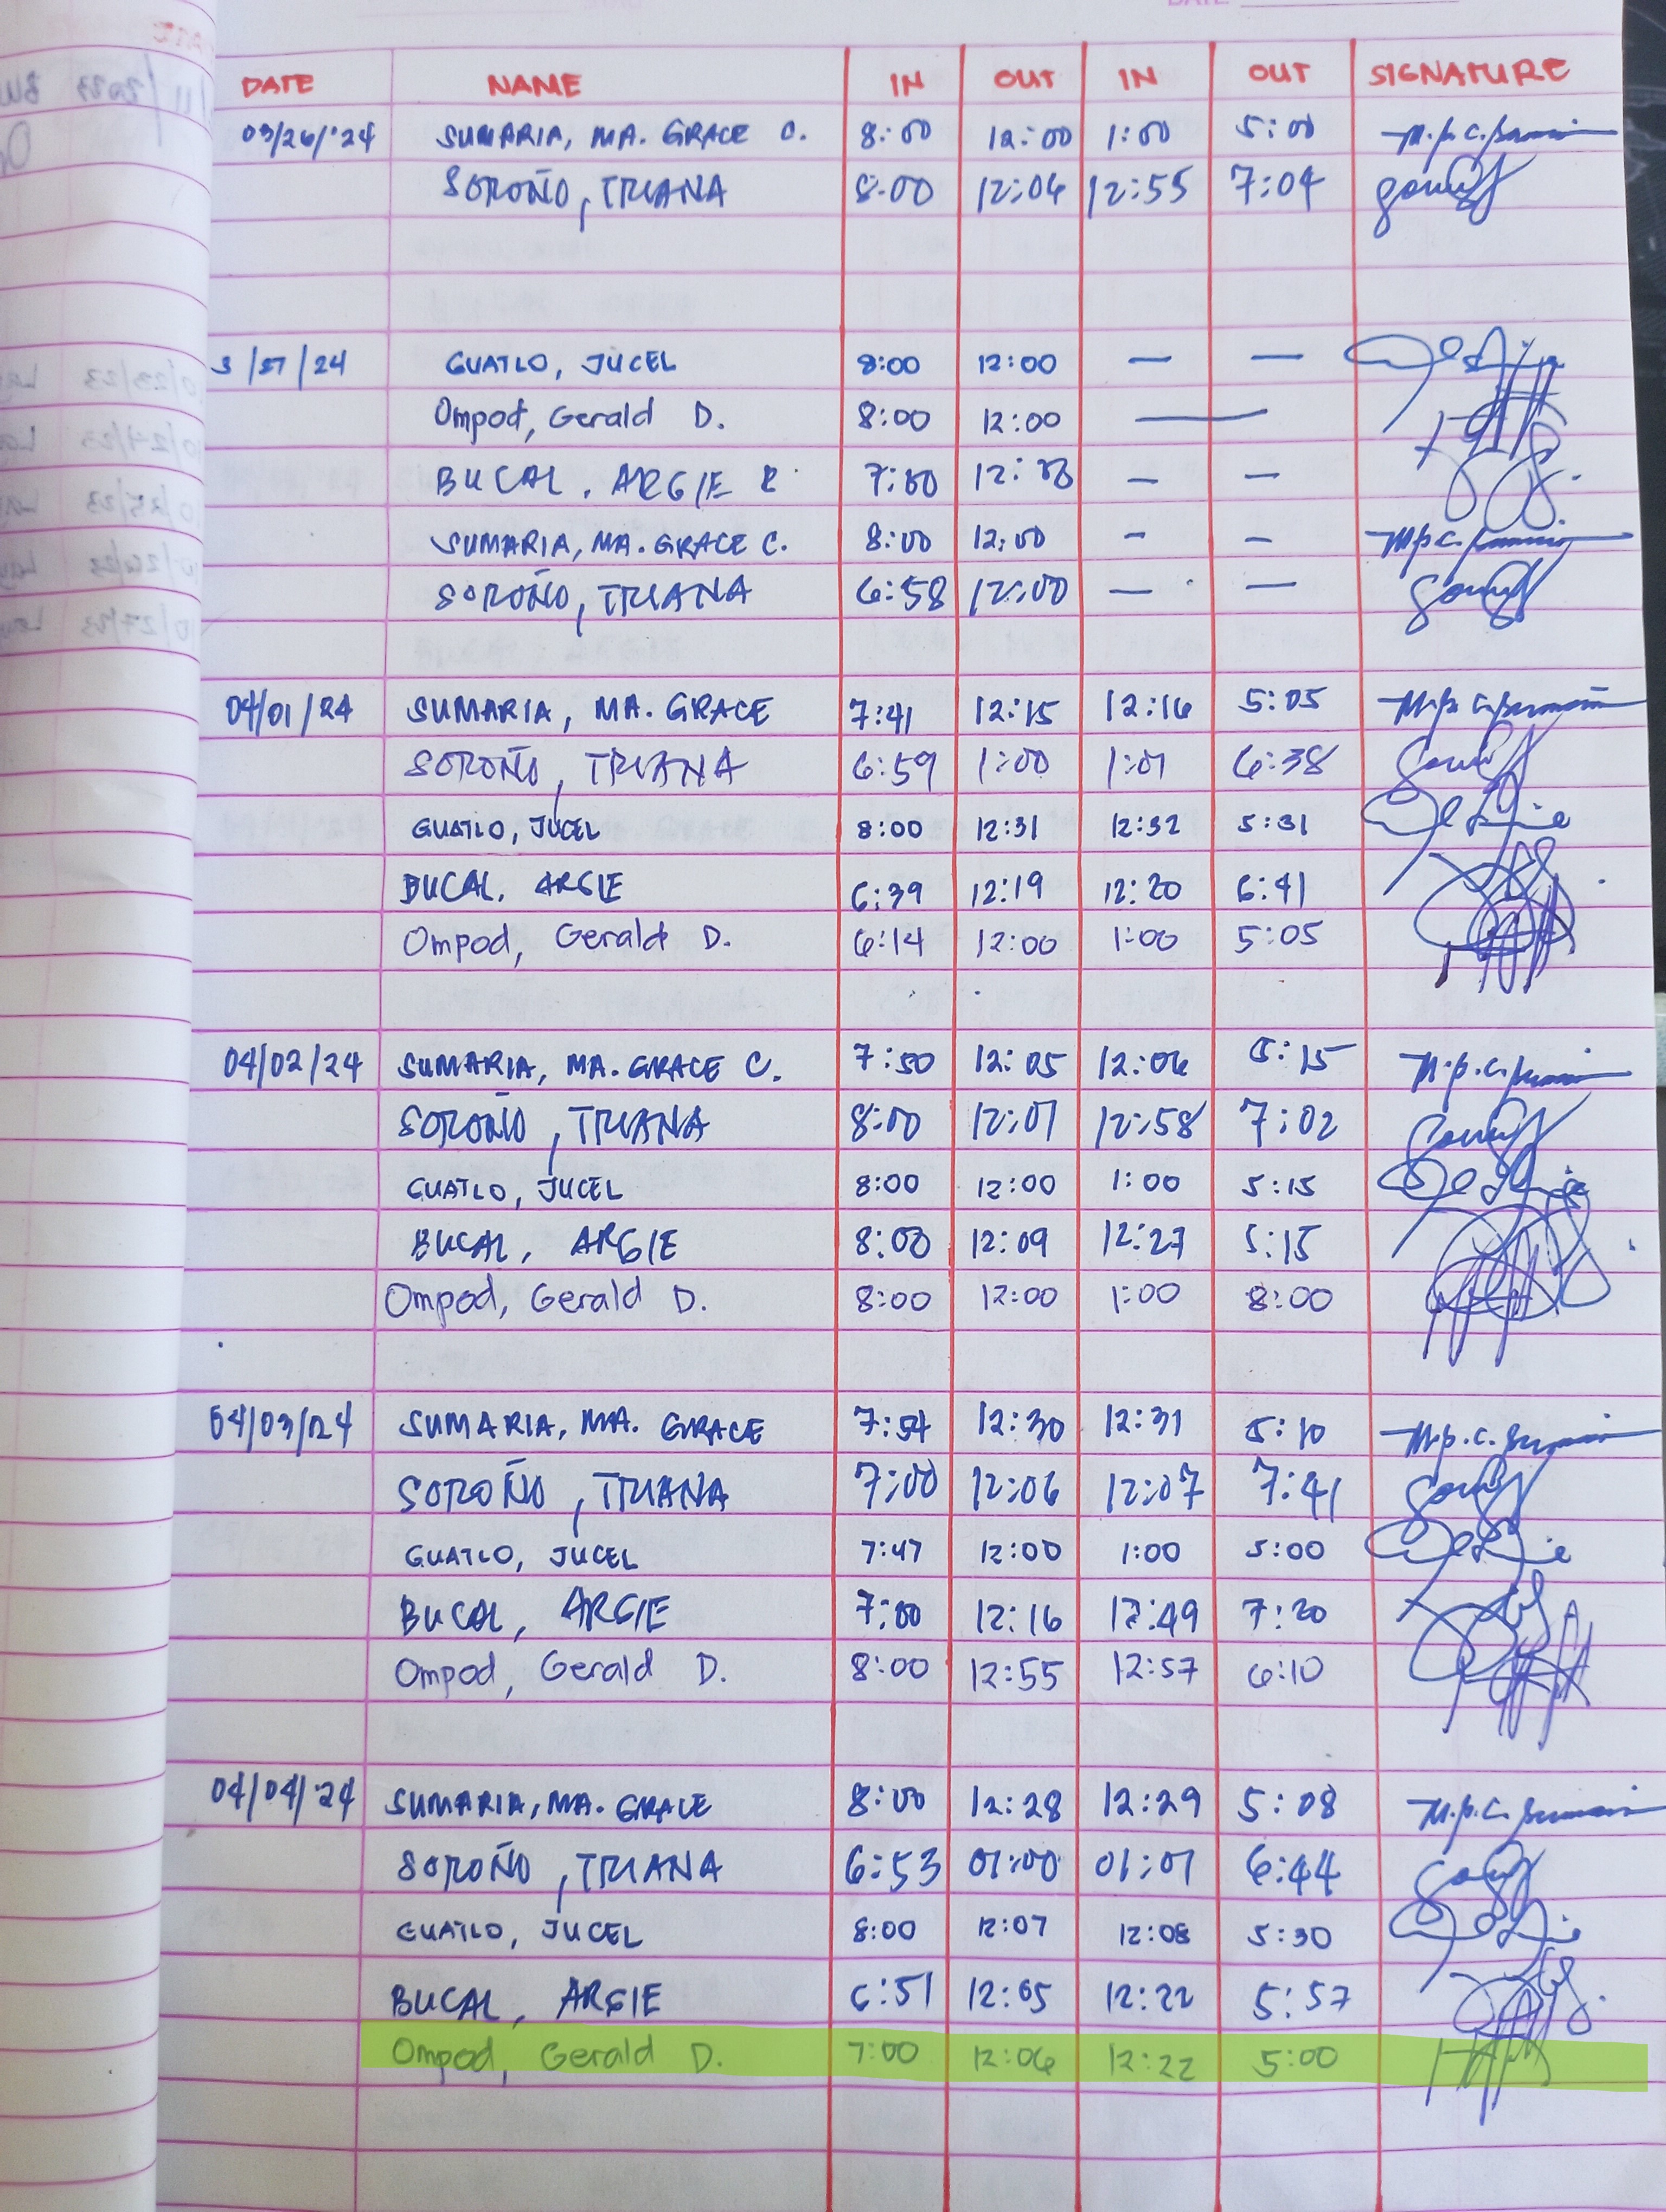 DATE
DATE NAME IN OUT IN OUT SIGNATURE
03/26/'24 SUMARIA, MA. GRACE C. 8:00 12:00 1:00 5:00
SOROÑO, TRIANA 8:00 12:06 12:55 7:04
3/27/24 GUATLO, JUCEL 8:00 12:00 — —
Ompod, Gerald D. 8:00 12:00 —
BUCAL, ARGIE R 7:00 12:00 — —
SUMARIA, MA. GRACE C. 8:00 12:00 - -
SOROÑO, TRIANA 6:58 12:00 — —
04/01/24 SUMARIA, MA. GRACE 7:41 12:15 12:16 5:05
SOROÑO, TRIANA 6:59 1:00 1:01 6:38
GUATLO, JUCEL 8:00 12:31 12:32 5:31
BUCAL, ARGIE 6:39 12:19 12:20 6:41
Ompod, Gerald D. 6:14 12:00 1:00 5:05
04/02/24 SUMARIA, MA. GRACE C. 7:50 12:05 12:06 5:15
SOROÑO, TRIANA 8:00 12:01 12:58 7:02
GUATLO, JUCEL 8:00 12:00 1:00 5:15
BUCAL, ARGIE 8:00 12:09 12:27 5:15
Ompod, Gerald D. 8:00 12:00 1:00 8:00
04/03/24 SUMARIA, MA. GRACE 7:54 12:30 12:31 5:10
SOROÑO, TRIANA 7:00 12:06 12:07 7:41
GUATLO, JUCEL 7:47 12:00 1:00 5:00
BUCAL, ARGIE 7:00 12:16 12:49 7:20
Ompod, Gerald D. 8:00 12:55 12:57 6:10
04/04/24 SUMARIA, MA. GRACE 8:00 12:28 12:29 5:08
SOROÑO, TRIANA 6:53 01:00 01:01 6:44
GUATLO, JUCEL 8:00 12:07 12:08 5:30
BUCAL, ARGIE 6:51 12:05 12:22 5:57
Ompod, Gerald D. 7:00 12:06 12:22 5:00